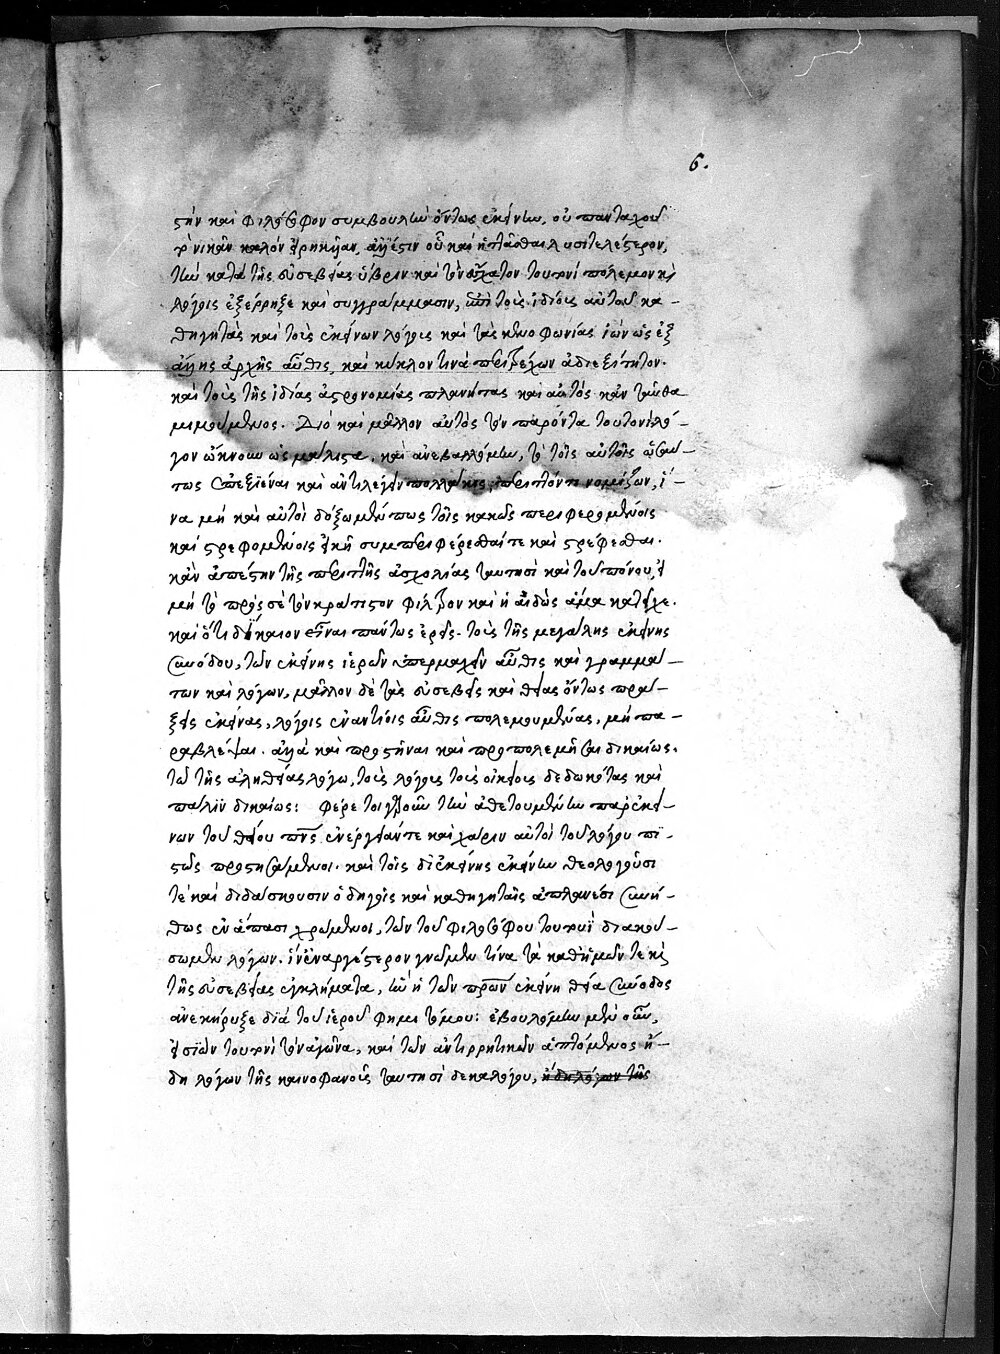 6.
στὴν καὶ φιλόσοφον συμβουλὴν ὄντως ἐκείνην, οὐ πανταχοῦ
τὸ νικᾶν καλὸν εἰρηκυῖαν, ἀλλ' ἔστιν οὗ καὶ ἡττᾶσθαι λυσιτελέστερον,
τὴν κατὰ τῆς εὐσεβείας ὕβριν καὶ τὸν ἔσχατον τουτονὶ πόλεμον καὶ
λόγοις ἐξέρρηξε καὶ συγγράμμασιν, τοῖς ἰδίοις αὐτοῦ κα-
θηγητὰς καὶ τοῖς ἐκείνων λόγοις καὶ τὰς κενοφωνίας ἰὼν ὡς ἐξ
ἄλλης ἀρχῆς αὖθις, καὶ κύκλον τινὰ περιτρέχων ἀδιεξίτητον.
καὶ τοὺς τῆς ἰδίας ἀστρονομίας πλανήτας καὶ αὐτὸς κἂν ταῦθα
μιμούμενος. Διὸ καὶ μᾶλλον αὐτὸς τὸν παρόντα τουτονὶ λό-
γον ὤκνουν ὡς μάλιστα, καὶ ἀνεβαλλόμην, τὸ τοῖς αὐτοῖς ὡσαύ-
τως ἐπεξιέναι καὶ ἀντιλέγειν πολλάκις, περιττόν τι νομίζων, ἵ-
να μὴ καὶ αὐτοὶ δόξωμέν πως τοῖς κακῶς περιφερομένοις
καὶ στρεφομένοις εἰκῆ συμπεριφέρεσθαί τε καὶ στρέφεσθαι.
κἂν ἀπέστην τῆς περὶ τῆς ἀσχολίας ταυτησὶ καὶ τοῦ πόνου, εἰ
μὴ τὸ πρὸς σὲ τὸν κράτιστον φίλτρον καὶ ἡ αἰδὼς ἅμα κατεῖχε.
καὶ ὅτι δίκαιον εἶναι πάντως ἐρεῖς. τοὺς τῆς μεγάλης ἐκείνης
συνόδου, τῶν ἐκείνης ἱερῶν ὑπερμαχεῖν αὖθις καὶ γραμμά-
των καὶ λόγων, μᾶλλον δὲ τὰς εὐσεβεῖς καὶ θείας ὄντως πρά-
ξεις ἐκείνας, λόγοις ἐναντίοις αὖθις πολεμουμένας, μὴ πα-
ραβλέψαι. ἀλλὰ καὶ προστῆναι καὶ προπολεμῆσαι δικαίως.
τῷ τῆς ἀληθείας λόγῳ, τοὺς λόγους τοὺς οἰκείους δεδωκότας καὶ
πάλιν δικαίως: Φέρε τοιγαροῦν τὴν ἀθετουμένην παρ' ἐκεί-
νων τοῦ θείου πνς ἐνέργειάν τε καὶ χάριν αὐτοὶ τοῦ λόγου πι-
στῶς προστησάμενοι. καὶ τοῖς δι' ἐκείνης ἐκείνην θεολογοῦσί
τε καὶ διδάσκουσιν ὁδηγοῖς καὶ καθηγηταῖς ἀπλανέσι συνή-
θως ἐν ἅπασι χρώμενοι, τῶν τοῦ φιλοσόφου τουτουῒ διακού-
σωμεν λόγων. ἵν' ἐναργέστερον γνῶμεν τίνα τὰ καθ' ἡμῶν τε καὶ
τῆς εὐσεβείας ἐγκλήματα, ὧν ἡ τῶν πρων ἐκείνη θεία σύνοδος
ἀνεκήρυξε διὰ τοῦ ἱεροῦ φημι τόμου: ἐβουλόμην μὲν οὖν,
εἰσιὼν τουτονὶ τὸν ἀγῶνα, καὶ τῶν ἀντιρρητικῶν ἁπτόμενος ἤ-
δη λόγων τῆς καινοφανοῦς ταυτησὶ δεκαλόγου, ἤδη λόγων τῆς